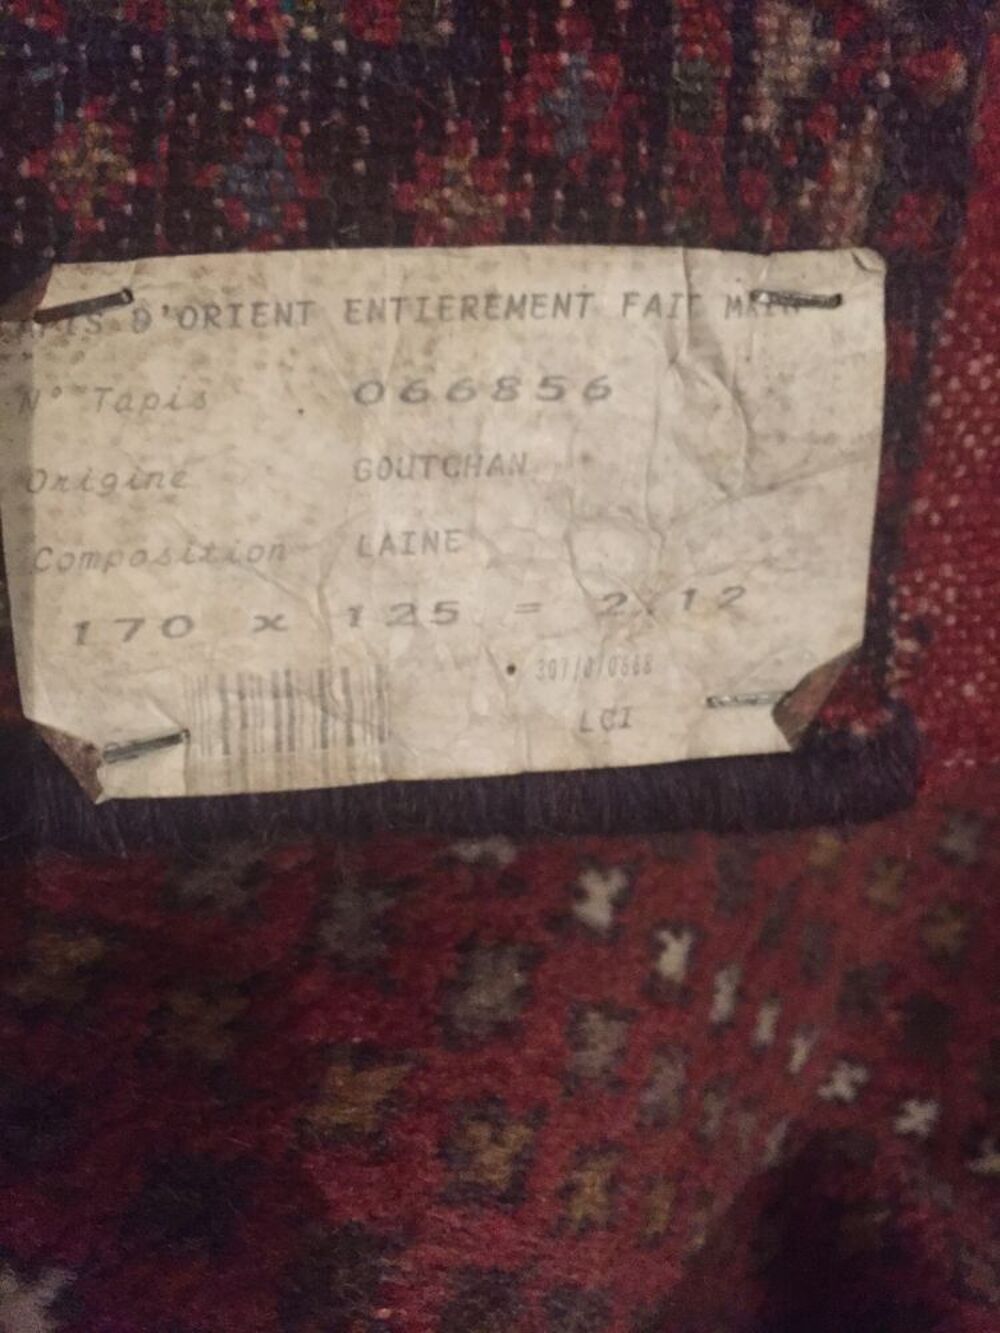 TAPIS D'ORIENT ENTIEREMENT FAIT MAIN
N° Tapis 066856
Origine GOUTCHAN
Composition LAINE
170 x 125 = 2.12
LCI